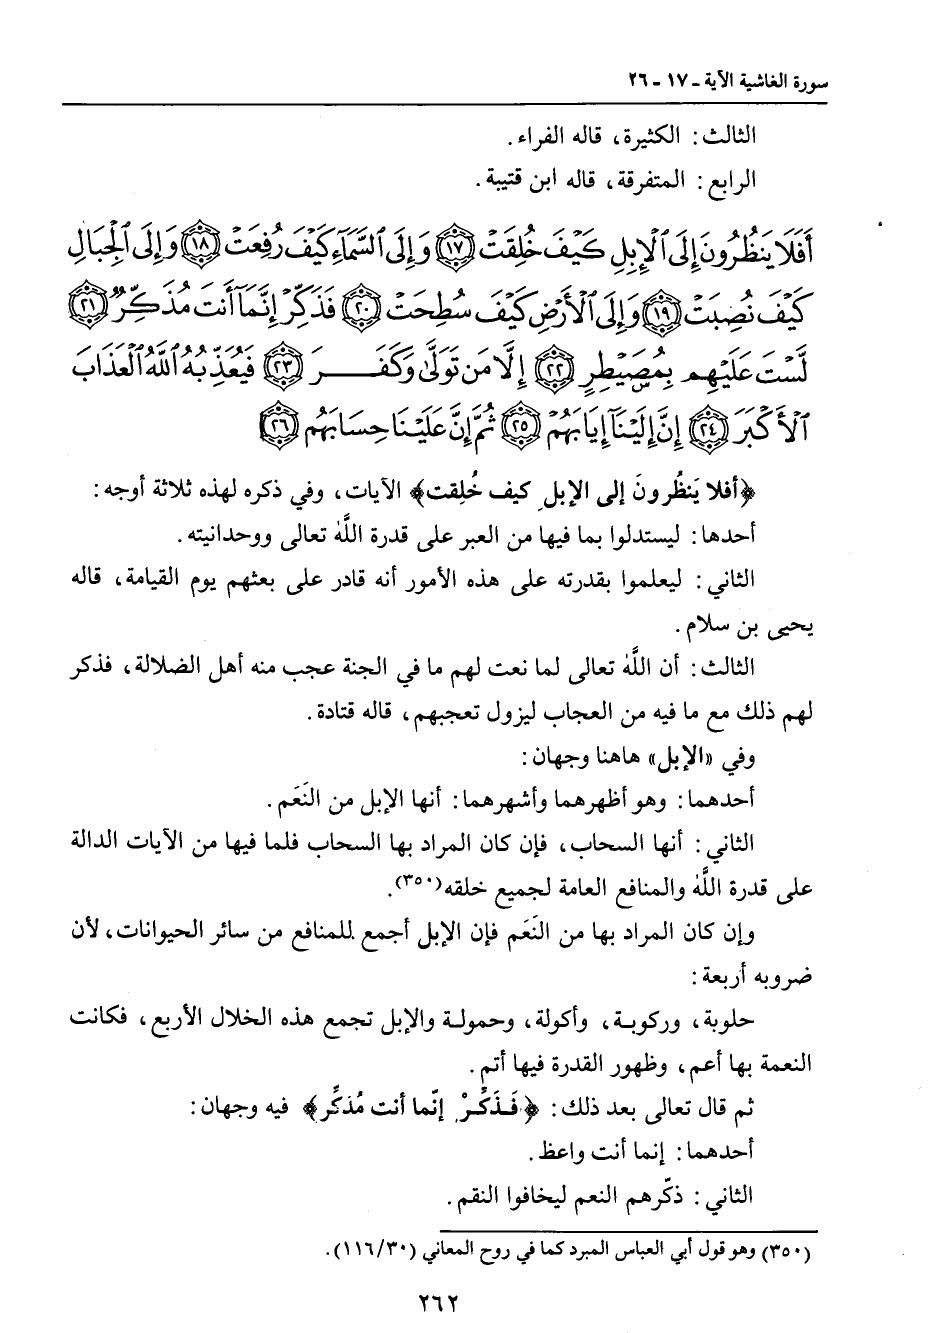 سورة الغاشية الآية ـ ١٧ ـ ٢٦
الثالث: الكثيرة، قاله الفراء.
الرابع: المتفرقة، قاله ابن قتيبة.
أَفَلَا يَنظُرُونَ إِلَى ٱلْإِبِلِ كَيْفَ خُلِقَتْ ١٧ وَإِلَى ٱلسَّمَآءِ كَيْفَ رُفِعَتْ ١٨ وَإِلَى ٱلْجِبَالِ
كَيْفَ نُصِبَتْ ١٩ وَإِلَى ٱلْأَرْضِ كَيْفَ سُطِحَتْ ٢٠ فَذَكِّرْ إِنَّمَآ أَنتَ مُذَكِّرٌ ٢١
لَّسْتَ عَلَيْهِم بِمُصَيْطِرٍ ٢٢ إِلَّا مَن تَوَلَّىٰ وَكَفَرَ ٢٣ فَيُعَذِّبُهُ ٱللَّهُ ٱلْعَذَابَ
ٱلْأَكْبَرَ ٢٤ إِنَّ إِلَيْنَآ إِيَابَهُمْ ٢٥ ثُمَّ إِنَّ عَلَيْنَا حِسَابَهُم ٢٦
﴿أفلا يَنظُرونَ إلى الإبلِ كيف خُلِقت﴾ الآيات، وفي ذكره لهذه ثلاثة أوجه:
أحدها: ليستدلوا بما فيها من العبر على قدرة اللَّه تعالى ووحدانيته.
الثاني: ليعلموا بقدرته على هذه الأمور أنه قادر على بعثهم يوم القيامة، قاله
يحيى بن سلام.
الثالث: أن اللَّه تعالى لما نعت لهم ما في الجنة عجب منه أهل الضلالة، فذكر
لهم ذلك مع ما فيه من العجاب ليزول تعجبهم، قاله قتادة.
وفي «الإبل» هاهنا وجهان:
أحدهما: وهو أظهرهما وأشهرهما: أنها الإبل من النَعَم.
الثاني: أنها السحاب، فإن كان المراد بها السحاب فلما فيها من الآيات الدالة
على قدرة اللَّه والمنافع العامة لجميع خلقه(٣٥٠).
وإن كان المراد بها من النَعَم فإن الإبل أجمع للمنافع من سائر الحيوانات، لأن
ضروبه أربعة:
حلوبة، وركوبة، وأكولة، وحمولة والإبل تجمع هذه الخلال الأربع، فكانت
النعمة بها أعم، وظهور القدرة فيها أتم.
ثم قال تعالى بعد ذلك: ﴿فَذَكِّرْ إنّما أنت مُذكِّر﴾ فيه وجهان:
أحدهما: إنما أنت واعظ.
الثاني: ذكّرهم النعم ليخافوا النقم.
(٣٥٠) وهو قول أبي العباس المبرد كما في روح المعاني (١١٦/٣٠).
٢٦٢